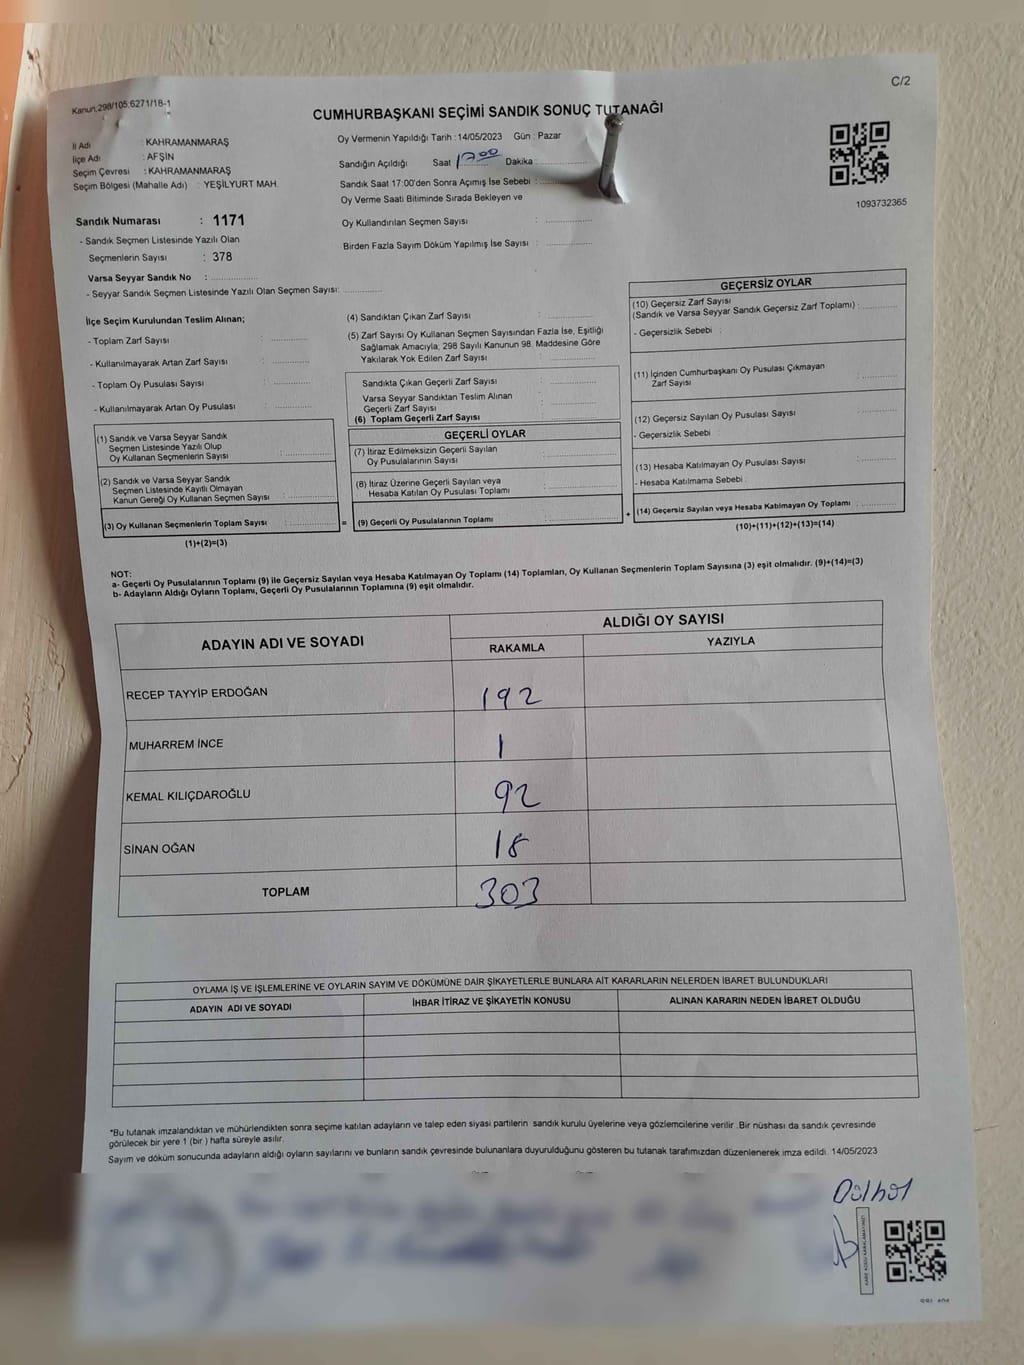 C/2
Kanun,298/105,6271/18-1
CUMHURBAŞKANI SEÇİMİ SANDIK SONUÇ TUTANAĞI
İl Adı : KAHRAMANMARAŞ
İlçe Adı : AFŞİN
Seçim Çevresi : KAHRAMANMARAŞ
Seçim Bölgesi (Mahalle Adı) : YEŞİLYURT MAH.
Oy Vermenin Yapıldığı Tarih :14/05/2023 Gün : Pazar
Sandığın Açıldığı Saat 17:00 Dakika :
Sandık Saat 17:00'den Sonra Açımış İse Sebebi :
Oy Verme Saati Bitiminde Sırada Bekleyen ve
Oy Kullandırılan Seçmen Sayısı :
Birden Fazla Sayım Döküm Yapılmış İse Sayısı :
1093732365
Sandık Numarası : 1171
- Sandık Seçmen Listesinde Yazılı Olan
Seçmenlerin Sayısı : 378
Varsa Seyyar Sandık No :
- Seyyar Sandık Seçmen Listesinde Yazılı Olan Seçmen Sayısı:
İlçe Seçim Kurulundan Teslim Alınan;
- Toplam Zarf Sayısı :
- Kullanılmayarak Artan Zarf Sayısı :
- Toplam Oy Pusulası Sayısı :
- Kullanılmayarak Artan Oy Pusulası :
(1) Sandık ve Varsa Seyyar Sandık
Seçmen Listesinde Yazılı Olup
Oy Kullanan Seçmenlerin Sayısı :
(2) Sandık ve Varsa Seyyar Sandık
Seçmen Listesinde Kayıtlı Olmayan
Kanun Gereği Oy Kullanan Seçmen Sayısı :
(3) Oy Kullanan Seçmenlerin Toplam Sayısı :
(1)+(2)=(3)
(4) Sandıktan Çıkan Zarf Sayısı :
(5) Zarf Sayısı Oy Kullanan Seçmen Sayısından Fazla İse, Eşitliği
Sağlamak Amacıyla, 298 Sayılı Kanunun 98. Maddesine Göre
Yakılarak Yok Edilen Zarf Sayısı :
Sandıkta Çıkan Geçerli Zarf Sayısı :
Varsa Seyyar Sandıktan Teslim Alınan
Geçerli Zarf Sayısı :
(6) Toplam Geçerli Zarf Sayısı :
GEÇERLİ OYLAR
(7) İtiraz Edilmeksizin Geçerli Sayılan
Oy Pusulalarının Sayısı :
(8) İtiraz Üzerine Geçerli Sayılan veya
Hesaba Katılan Oy Pusulası Toplamı :
= (9) Geçerli Oy Pusulalarının Toplamı :
GEÇERSİZ OYLAR
(10) Geçersiz Zarf Sayısı
(Sandık ve Varsa Seyyar Sandık Geçersiz Zarf Toplamı) :
- Geçersizlik Sebebi :
(11) İçinden Cumhurbaşkanı Oy Pusulası Çıkmayan
Zarf Sayısı :
(12) Geçersiz Sayılan Oy Pusulası Sayısı :
- Geçersizlik Sebebi :
(13) Hesaba Katılmayan Oy Pusulası Sayısı :
- Hesaba Katılmama Sebebi :
+ (14) Geçersiz Sayılan veya Hesaba Katılmayan Oy Toplamı :
(10)+(11)+(12)+(13)=(14)
NOT:
a- Geçerli Oy Pusulalarının Toplamı (9) ile Geçersiz Sayılan veya Hesaba Katılmayan Oy Toplamı (14) Toplamları, Oy Kullanan Seçmenlerin Toplam Sayısına (3) eşit olmalıdır. (9)+(14)=(3)
b- Adayların Aldığı Oyların Toplamı, Geçerli Oy Pusulalarının Toplamına (9) eşit olmalıdır.
ADAYIN ADI VE SOYADI
ALDIĞI OY SAYISI
RAKAMLA YAZIYLA
RECEP TAYYİP ERDOĞAN 192
MUHARREM İNCE 1
KEMAL KILIÇDAROĞLU 92
SİNAN OĞAN 18
TOPLAM 303
OYLAMA İŞ VE İŞLEMLERİNE VE OYLARIN SAYIM VE DÖKÜMÜNE DAİR ŞİKAYETLERLE BUNLARA AİT KARARLARIN NELERDEN İBARET BULUNDUKLARI
ADAYIN ADI VE SOYADI İHBAR İTİRAZ VE ŞİKAYETİN KONUSU ALINAN KARARIN NEDEN İBARET OLDUĞU
*Bu tutanak imzalandıktan ve mühürlendikten sonra seçime katılan adayların ve talep eden siyasi partilerin sandık kurulu üyelerine veya gözlemcilerine verilir .Bir nüshası da sandık çevresinde
görülecek bir yere 1 (bir ) hafta süreyle asılır.
Sayım ve döküm sonucunda adayların aldığı oyların sayılarını ve bunların sandık çevresinde bulunanlara duyurulduğunu gösteren bu tutanak tarafımızdan düzenlenerek imza edildi. 14/05/2023